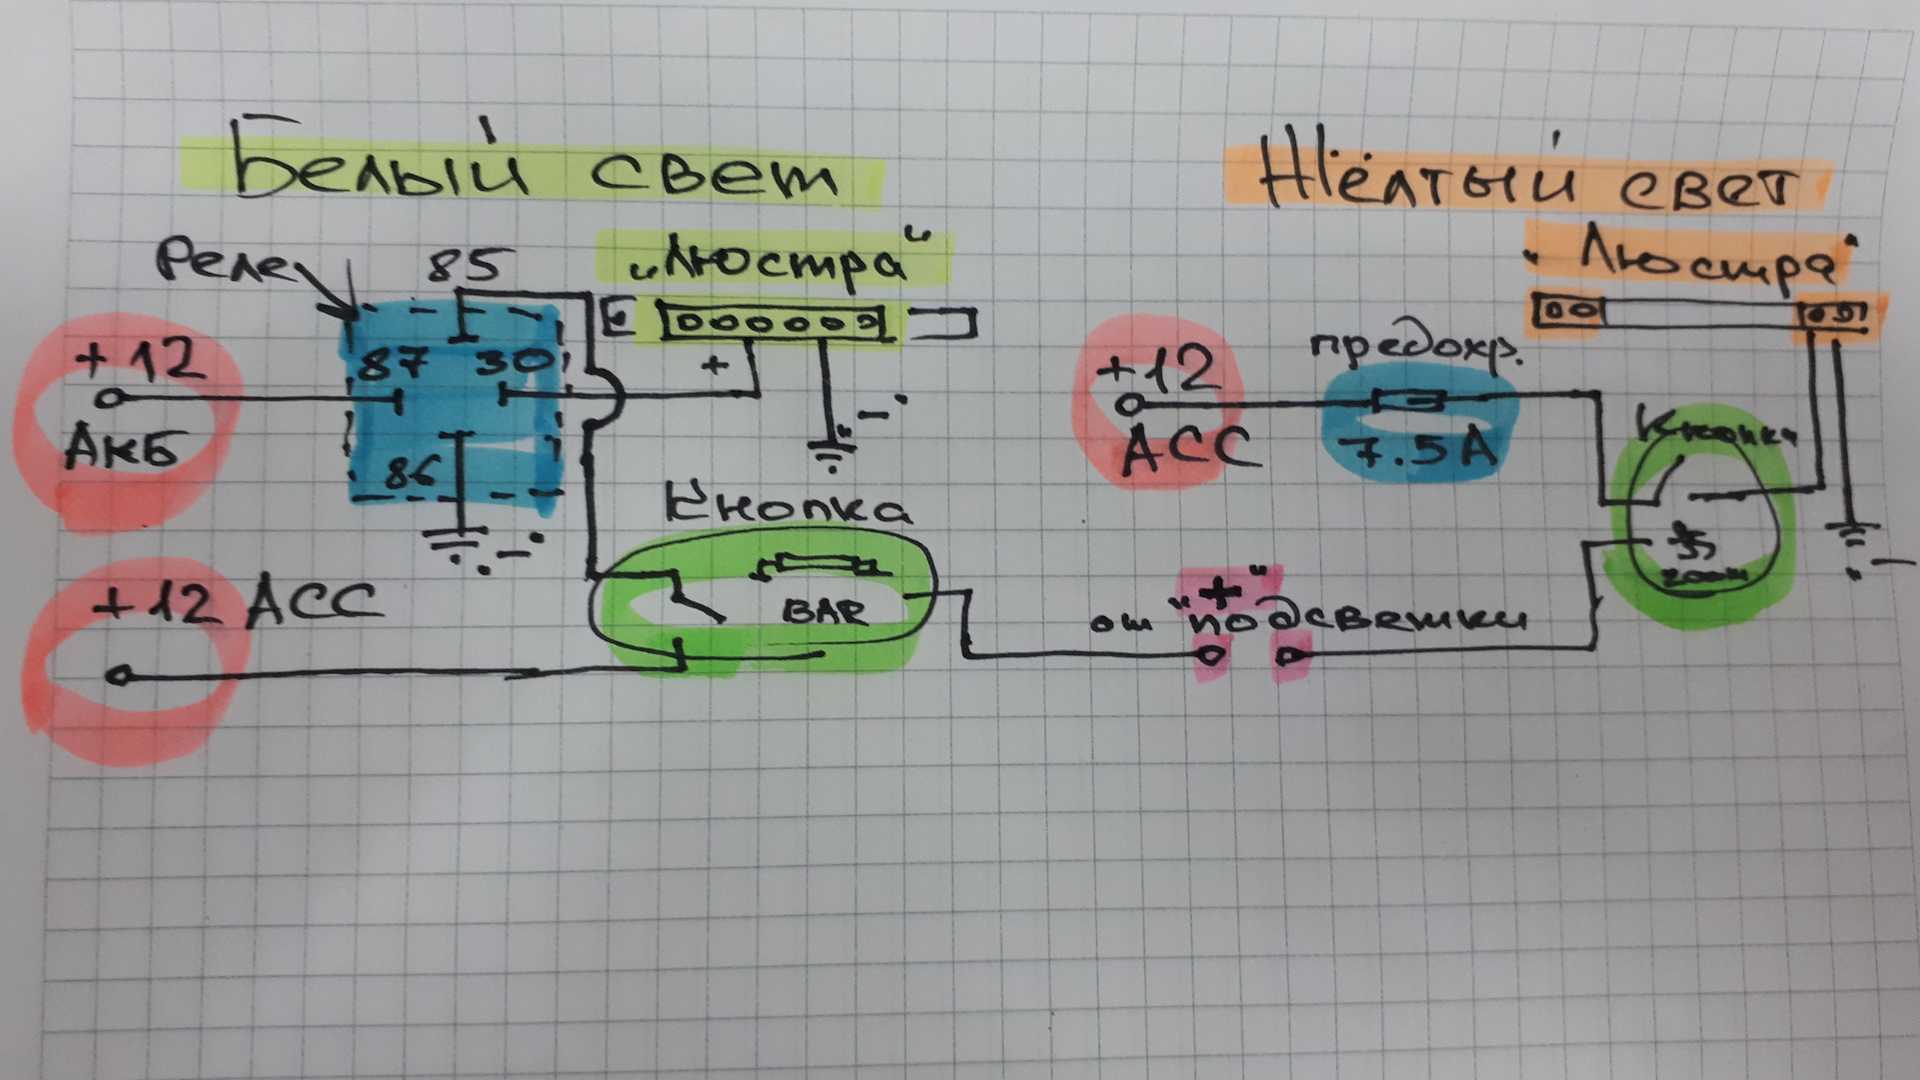 Белый свет
Реле
85
"Люстра"
+12
87
30
+
АКБ
86
"-"
"-"
Кнопка
+12 АСС
BAR
Жёлтый свет
"Люстра"
+12
предохр.
АСС
7.5А
Кнопка
"-"
от "+" подсветки